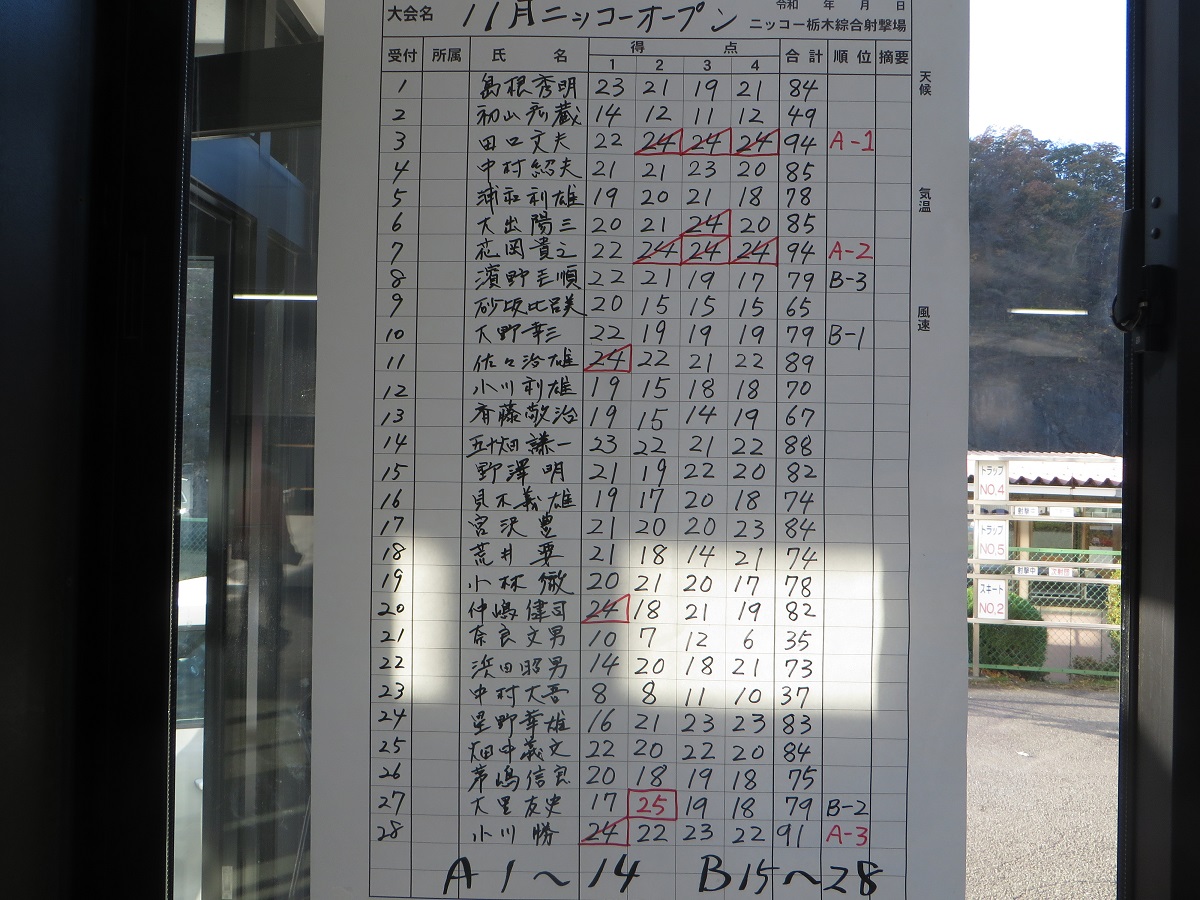 大会名 11月ニッコーオープン 令和 年 月 日
ニッコー栃木綜合射撃場
受付 所属 氏名 得点 合計 順位 摘要
1 2 3 4
1 島根秀明 23 21 19 21 84
2 初山 蔵 14 12 11 12 49
3 田口文夫 22 24 24 24 94 A-1
4 中村紹夫 21 21 23 20 85
5 浦和利雄 19 20 21 18 78
6 大出陽三 20 21 24 20 85
7 花岡貴之 22 24 24 24 94 A-2
8 濱野 順 22 21 19 17 79 B-3
9 砂坂 美 20 15 15 15 65
10 大野幸三 22 19 19 19 79 B-1
11 佐々治雄 24 22 21 22 89
12 小川利雄 19 15 18 18 70
13 斉藤敬治 19 15 14 19 67
14 五十畑謙一 23 22 21 22 88
15 野澤明 21 19 22 20 82
16 貝木義雄 19 17 20 18 74
17 宮沢豊 21 20 20 23 84
18 荒井要 21 18 14 21 74
19 小林徹 20 21 20 17 78
20 仲嶋偉司 24 18 21 19 82
21 奈良文男 10 7 12 6 35
22 浜田昭男 14 20 18 21 73
23 中村大吾 8 8 11 10 37
24 星野華雄 16 21 23 23 83
25 畑中義文 22 20 22 20 84
26 茅嶋信良 20 18 19 18 75
27 大里友史 17 25 19 18 79 B-2
28 小川勝 24 22 23 22 91 A-3
A 1〜14 B15〜28
天候
気温
風速
トラップ
NO.4
射撃中
トラップ
NO.5
射撃中
スキート
NO.2